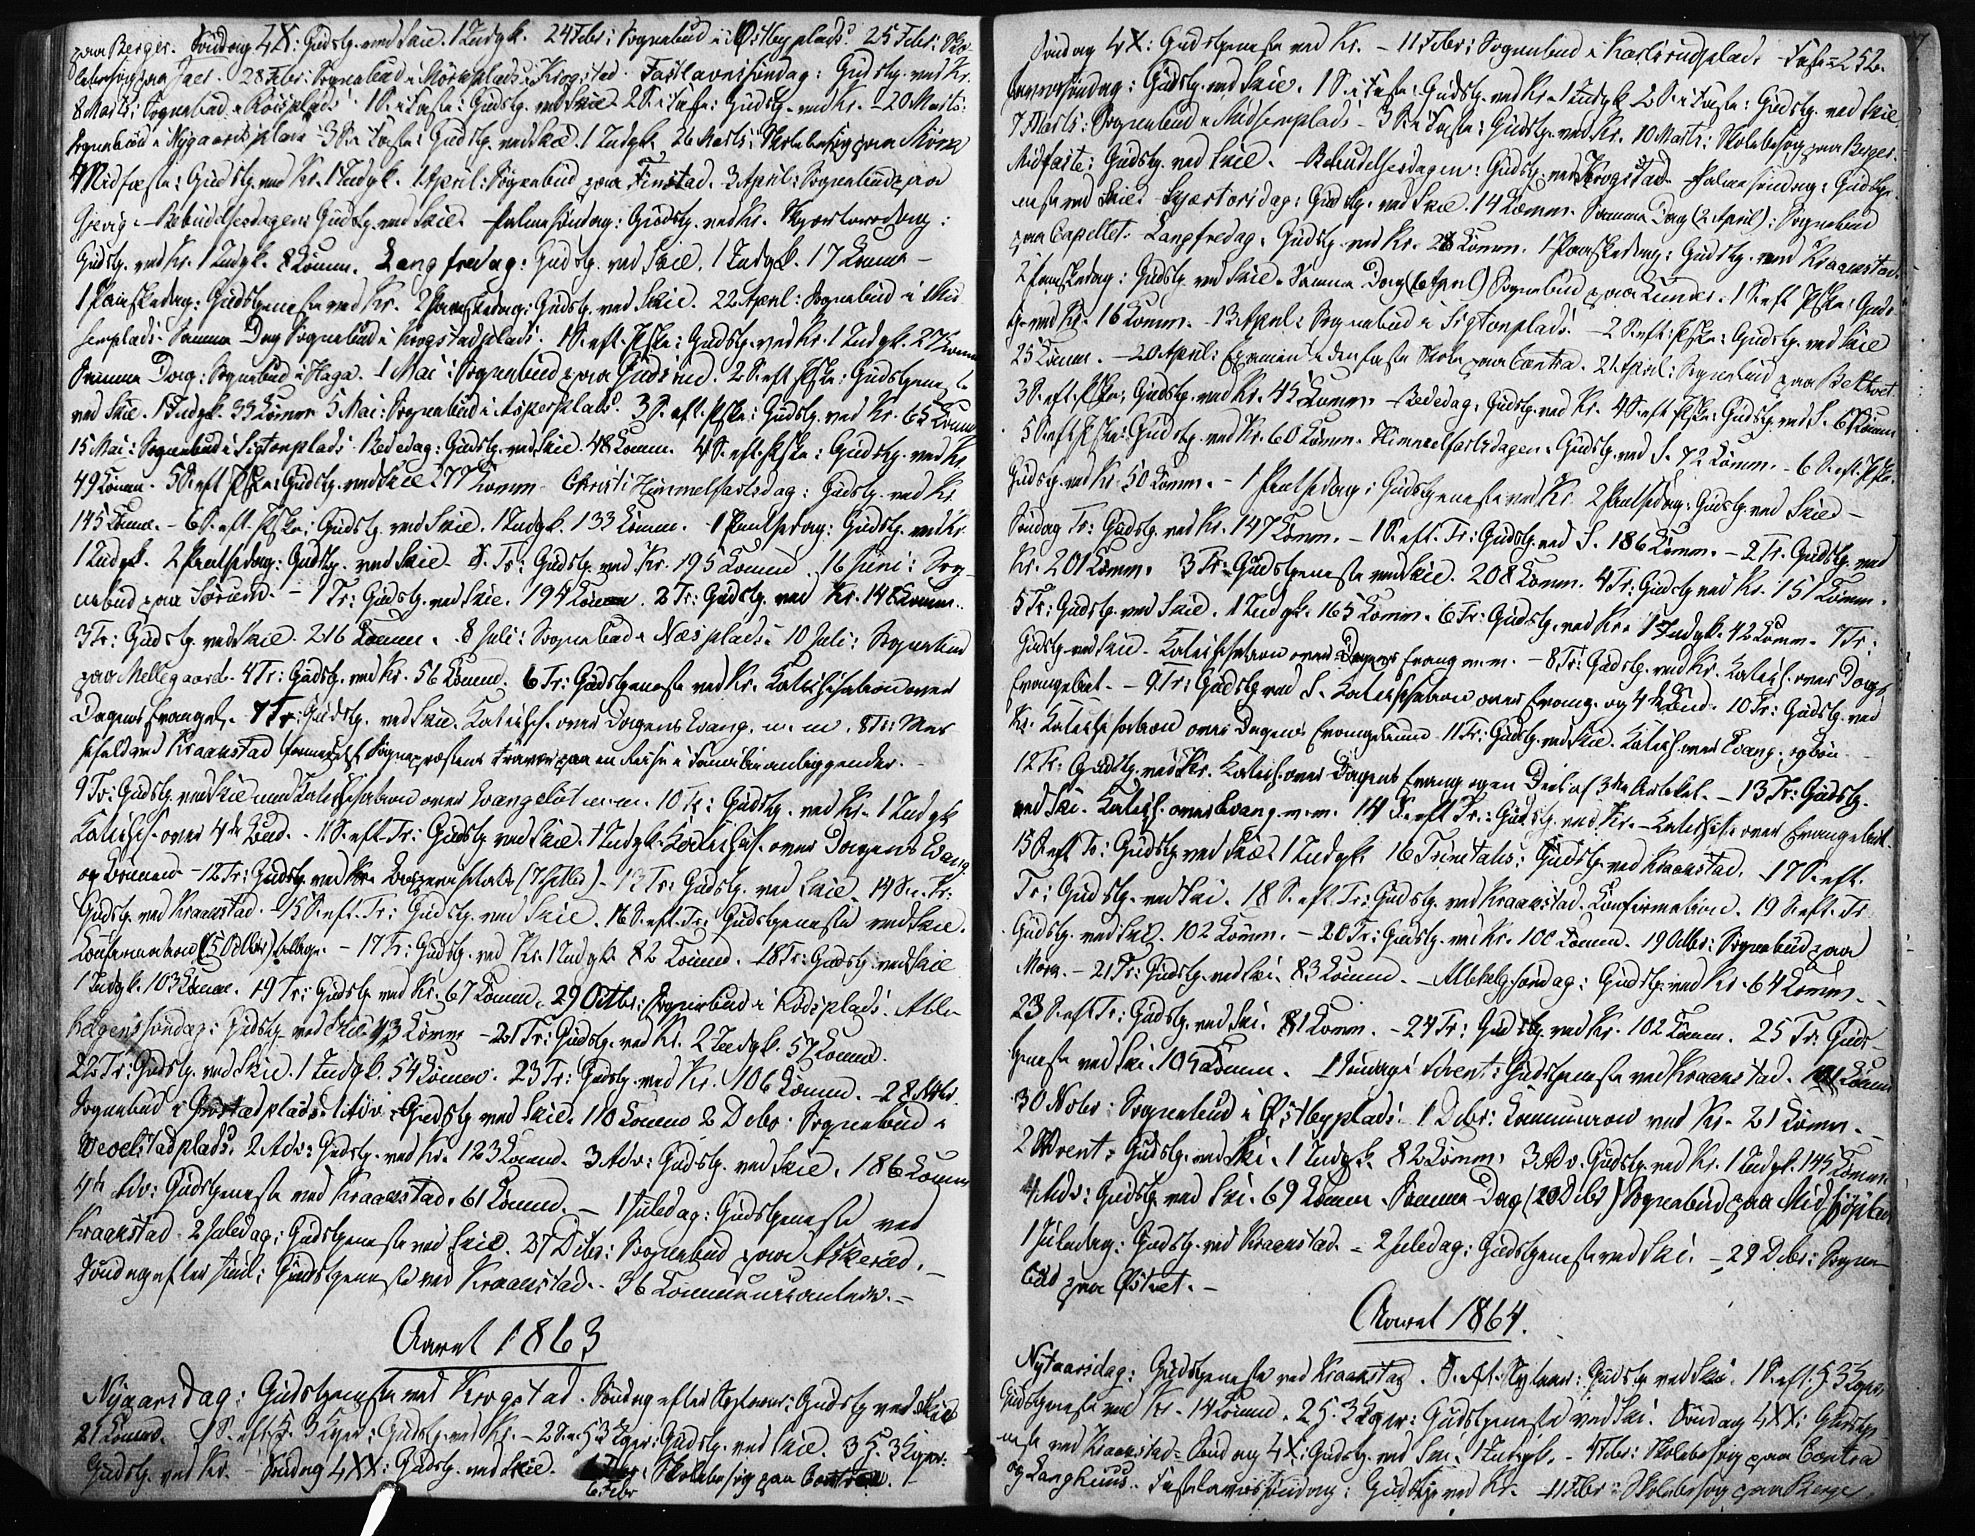 paa Berger. Søndag LX: Gudstj. ved Skie. 1 Indgk. 24 Febr: Sognebud i Østbyplads. 25 Febr: Sko-
lebesøg paa Jaer. 28 Febr: Sognebud i Mörkplads i Krogstad. Fastlavnssöndag: Gudstj. ved Kr.
8 Marts: Sognebud i Rösplads. 1 S. i Faste: Gudstj. ved Skie. 2 S. i Faste: Gudstj. ved Kr. – 20 Marts:
Sognebud i Nygaardsplads. 3 S. i Faste: Gudstj. ved Skie. 1 Indgk. 26 Marts: Skolebesøg paa Möra
Midfaste: Gudstj. ved Kr. 1 Indgk. 1 April: Sognebud paa Finstad. 3 April: Sognebud paa
Gjevig. Bebudelsesdagen: Gudstj. ved Skie. Palmesöndag: Gudstj. ved Kr. Skjærtorsdag:
Gudstj. ved Kr. 1 Indgk. 8 Komm. Langfredag: Gudstj. ved Skie. 1 Indgk. 17 Komm. –
1 Paaskedag: Gudstjeneste ved Kr. 2 Paaskedag: Gudstj. ved Skie. 22 April: Sognebud i Mid-
senplads. Samme Dag Sognebud i Krogstadplads. 1 S. eft. Pske: Gudstj. ved Kr. 1 Indgk. 27 Komm
Samme Dag: Sognebud i Haga. 1 Mai: Sognebud paa Gudsrud. 2 S. eft. Pske: Gudstjeneste
ved Skie. 1 Indgk. 33 Komm. 5 Mai: Sognebud i Aspersplads. 3 S. eft. Pske: Gudstj. ved Kr. 65 Komm
15 Mai: Sognebud i Sigtonplads. Bededag: Gudstj. ved Skie. 48 Komm. 4 S. eft. Pske: Gudstj. ved Kr.
49 Komm. 5 S. eft. Pske: Gudstj. ved Skie 277 Komm. Christi Himmelfartsdag: Gudstj. ved Kr.
145 Komm. – 6 S. eft. Pske: Gudstj. ved Skie. 1 Indgk. 133 Komm. 1 Pintsedag: Gudstj. ved Kr.
1 Indgk. 2 Pintsedag: Gudstj. ved Skie. S. Tr: Gudstj. ved Kr. 195 Komm. 16 Juni: Sog-
nebud paa Sörum. – 1 Tr: Gudstj. ved Skie. 194 Komm. 2 Tr: Gudstj. ved Kr. 148 Komm.
3 Tr: Gudstj. ved Skie. 216 Komm. 8 Juli: Sognebud i Næsplads. 10 Juli: Sognebud
paa Mellegaard. 4 Tr: Gudstj. ved Kr. 56 Komm. 6 Tr: Gudstjeneste ved Kr. Katechisation over
Dagens Evangel. 7 Tr: Gudstj. ved Skie. Katechis. over Dagens Evang. m. m. 8 Tr: Mes-
sefald ved Kraakstad formedelst Sognepræstens Fravær paa en Reise i Familieanliggender.
9 Tr: Gudstj. ved Skie med Katechisation over Evangeliet m. m. 10 Tr: Gudstj. ved Kr. 1 Indgk
Katechis. over 4de Bud. – 11 S. eft. Tr: Gudstj. ved Skie. 1 Indgk. Katechis. over Dagens Evang.
og Bönnen. – 12 Tr: Gudstj. ved Kr. – 13 Tr: Gudstj. ved Skie. 14 S. e. Tr:
Gudstj. ved Kraakstad. 15 S. eft. Tr: Gudstj. ved Skie. 16 S. eft. Tr: Gudstjeneste ved Skie.
Confirmation (5 Octbr). – 17 Tr: Gudstj. ved Kr. 1 Indgk. 82 Komm. 18 Tr: Gudstj. ved Skie
1 Indgk. 103 Komm. 19 Tr: Gudstj. ved Kr. 67 Komm. 29 Octbr: Sognebud i Rödsplads. Alle-
helgenssöndag: Gudstj. ved Skie 43 Komm. – 21 Tr: Gudstj. ved Kr. 2 Indgk. 57 Komm.
22 Tr: Gudstj. ved Skie. 1 Indgk. 54 Komm. 23 Tr: Gudstj. ved Kr. 106 Komm. – 28 Novbr.
Sognebud i plads. 1 Adv: Gudstj. ved Skie. 110 Komm. 2 Debr: Sognebud i
Wevelstadplads. 2 Adv: Gudstj. ved Kr. 123 Komm. 3 Adv: Gudstj. ved Skie. 186 Komm
4de Adv: Gudstjeneste ved Kraakstad. 61 Komm. – 1 Juledag: Gudstjeneste ved
Kraakstad. 2 Juledag: Gudstjeneste ved Skie. 27 Debr: Sognebud paa Askerud. –
Söndag efter Juul: Gudstjeneste ved Kraakstad. – 36 Communicantere. –
Aaret 1863
Nyaarsdag: Gudstjeneste ved Krogstad. Søndag efter Nytaar: Gudstj. ved Skie
21 Komm. 1 S. eft. H. 3 Kger: Gudstj. ved Kr. – 2 S. e. H 3 Kger: Gudstj. ved Skie. 3 H. 3 Kger:
Gudstj. ved Kr. – Søndag LXX: Gudstj. ved Skie. Skolebesøg paa Contra.
6 Febr
Søndag LX: Gudstjeneste ved Kr. – 11 Febr: Sognebud i Karlsrudplads. Faste- 252.
lavnssöndag: Gudstj. ved Skie. 1 S. i Faste: Gudstj. ved Kr. 1 Indgk. 2 S. i Faste: Gudstj. ved Skie.
7 Marts: Sognebud i Midsemplads – 3 S. i Faste: Gudstj. ved Kr. 10 Marts: Skolebesøg paa Berger.
Midfaste: Gudstj. ved Skie. – Bebudelsesdagen: Gudstj. ved Krogstad. Palmesöndag: Gudstje-
neste ved Skie. Skjærtorsdag: Gudstj. ved Skie. 14 Komm. Samme Dag (2 April): Sognebud
paa Capellet. Langfredag: Gudstj. ved Kr. 28 Komm. 1 Paaskedag: Gudstj. ved Kraakstad.
2 Paaskedag: Gudstj. ved Skie. Samme Dag (6 April) Sognebud paa Kinder. 1 S. eft. Pske: Gud-
stj. ved Kr. 16 Komm. – 13 April: Sognebud i Sigtonplads. – 2 S. eft. Pske: Gudstj. ved Skie
25 Komm. – 20 April: Examen i den faste Skole paa Contra. 21 April: Sognebud paa Beltvet.
3 S. eft. Pske: Gudstj. ved Kr. 45 Komm. Bededag: Gudstj. ved Kr. 4 S. eft. Pske: Gudstj. ved S. 67 Komm
5 S. eft. Pske: Gudstj. ved Kr. 60 Komm. Himmelfartsdagen: Gudstj. ved S. 72 Komm. – 6 S. eft. Pske:
Gudstj. ved Kr. 50 Komm. – 1 Pintsedag: Gudstjeneste ved Kr. 2 Pintsedag: Gudstj. ved Skie. –
Søndag Tr: Gudstj. ved Kr. 147 Komm. – 1 S. eft. Tr: Gudstj. ved S. 186 Komm. – 2 Tr: Gudstj. ved
Kr. 201 Komm. 3 Tr: Gudstjeneste ved Skie. 208 Komm. 4 Tr: Gudstj. ved Kr. 151 Komm.
5 Tr: Gudstj. ved Skie. 1 Indgk. 165 Komm. 6 Tr: Gudstj. ved Kr. 1 Indgk. 42 Komm. 7 Tr:
Gudstj. ved Skie. Katechisation over Dagens Evang. m. m. – 8 Tr: Gudstj. ved Kr. Katech. over Dagens
Evangeliet. – 9 Tr: Gudstj. ved S. Katechisation over Evang. og 4de Bud. 10 Tr: Gudstj. ved
Kr. Katechisation over Dagens Evangelium. 11 Tr: Gudstj. ved Skie. Katech. over Evang. og Bön
12 Tr: Gudstj. ved Kr. Katech. over Dagens Evang. og en Deel af 3die Artikel. – 13 Tr: Gudstj.
ved Ski. Katech. over Evang. m. m. 14 S. eft. Tr: Gudstj. ved Kr. – Katechis. over Evangeliet.
15 S. eft. Tr: Gudstj. ved Skie. 1 Indgk. 16 Trinitatis: Gudstj. ved Kraakstad. 17 S. eft.
Tr: Gudstj. ved Ski. 18 S. eft. Tr: Gudstj. ved Kraakstad. Confirmation. 19 S. eft. Tr
Gudstj. ved Ski. 102 Komm. – 20 Tr: Gudstj. ved Kr. 100 Komm. 19 Octbr: Sognebud paa
Möra. – 21 Tr: Gudstj. ved Ski. 83 Komm. – Allehelgssøndag: Gudstj. ved Kr. 64 Komm. –
23 S. eft. Tr: Gudstj. ved Ski. 81 Komm. – 24 Tr: Gudstj. ved Kr. 102 Komm. 25 Tr: Guds-
tjeneste ved Ski. 105 Komm. 1 Söndag i Advent: Gudstjeneste ved Kraakstad. 101 Komm
30 Novbr: Sognebud i Østbyplads. 1 Debr: Communion ved Kr. 21 Komm. –
2 Advent: Gudstj. ved Ski. 1 Indgk. 82 Komm. 3 Adv. Gudstj. ved Kr. 1 Indgk. 145 Komm.
4 Adv: Gudstj. ved Ski. 69 Komm. Samme Dag (20 Debr) Sognebud paa
1 Juledag: Gudstj. ved Kraakstad. – 2 Juledag: Gudstjeneste ved Ski. – 29 Debr: Sogne-
bud paa Østvet. –
Aaret 1864.
Nytaarsdag: Gudstjeneste ved Kraakstad. S. eft. Nytaar: Gudstj. ved Ski. 1 S. eft. H 3 Kger:
Gudstjeneste ved Kr. 14 Komm. 2 H. 3 Kger: Gudstjeneste ved Ski. Søndag LXX: Gudstje-
neste ved Kraakstad. Søndag LX: Gudstj. ved Ski. 1 Indgk. – Febr: Skolebesøg paa Contra
og Langhuus. Fastelavnssöndag: Gudstj. ved Kr. 11 Febr: Skolebesøg paa Berger.